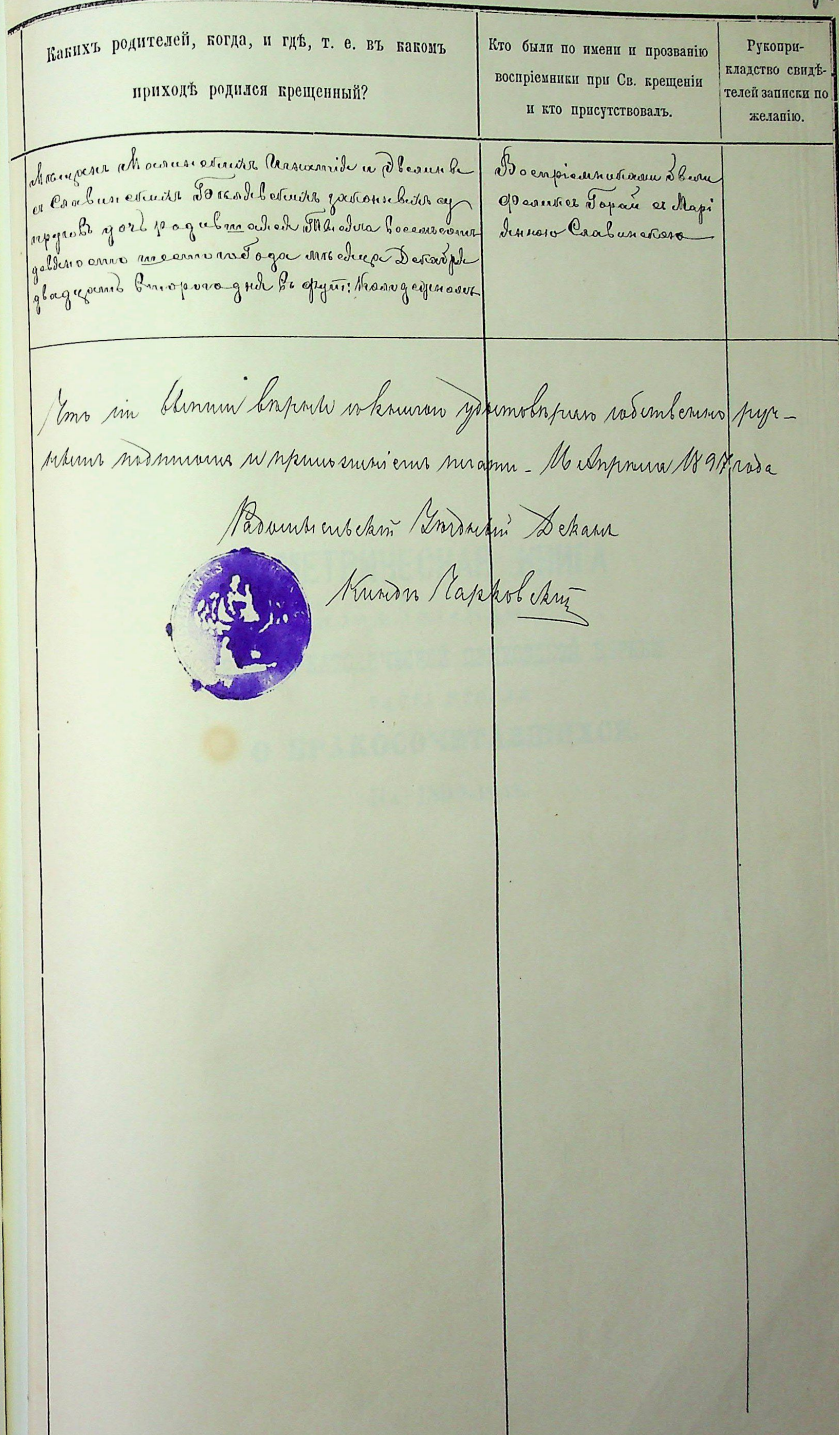 Какихъ родителей, когда, и гдѣ, т. е. въ каком
приходѣ родился крещенный?
Кто были по имени и прозванію
воспріемники при Св. крещеніи
и кто присутствовалъ.
Рукопри-
кладство свидѣ-
телей записки по
желанію.
Мѣщанъ Игнатія и
Славинскихъ законныхъ су
пруговъ дочь родившаяся тысяча восемьсотъ
девяносто шестого года мѣсяца Декабря
двадцать второго дня въ
Воспріемниками были
Феликсъ с Марі
янною Славинскою
вѣрно съ книгою удостовѣряю собственно руч-
нымъ подписомъ и приложеніемъ печати - Апрѣля 1897 года
Радомысльскій Уѣздный Деканъ